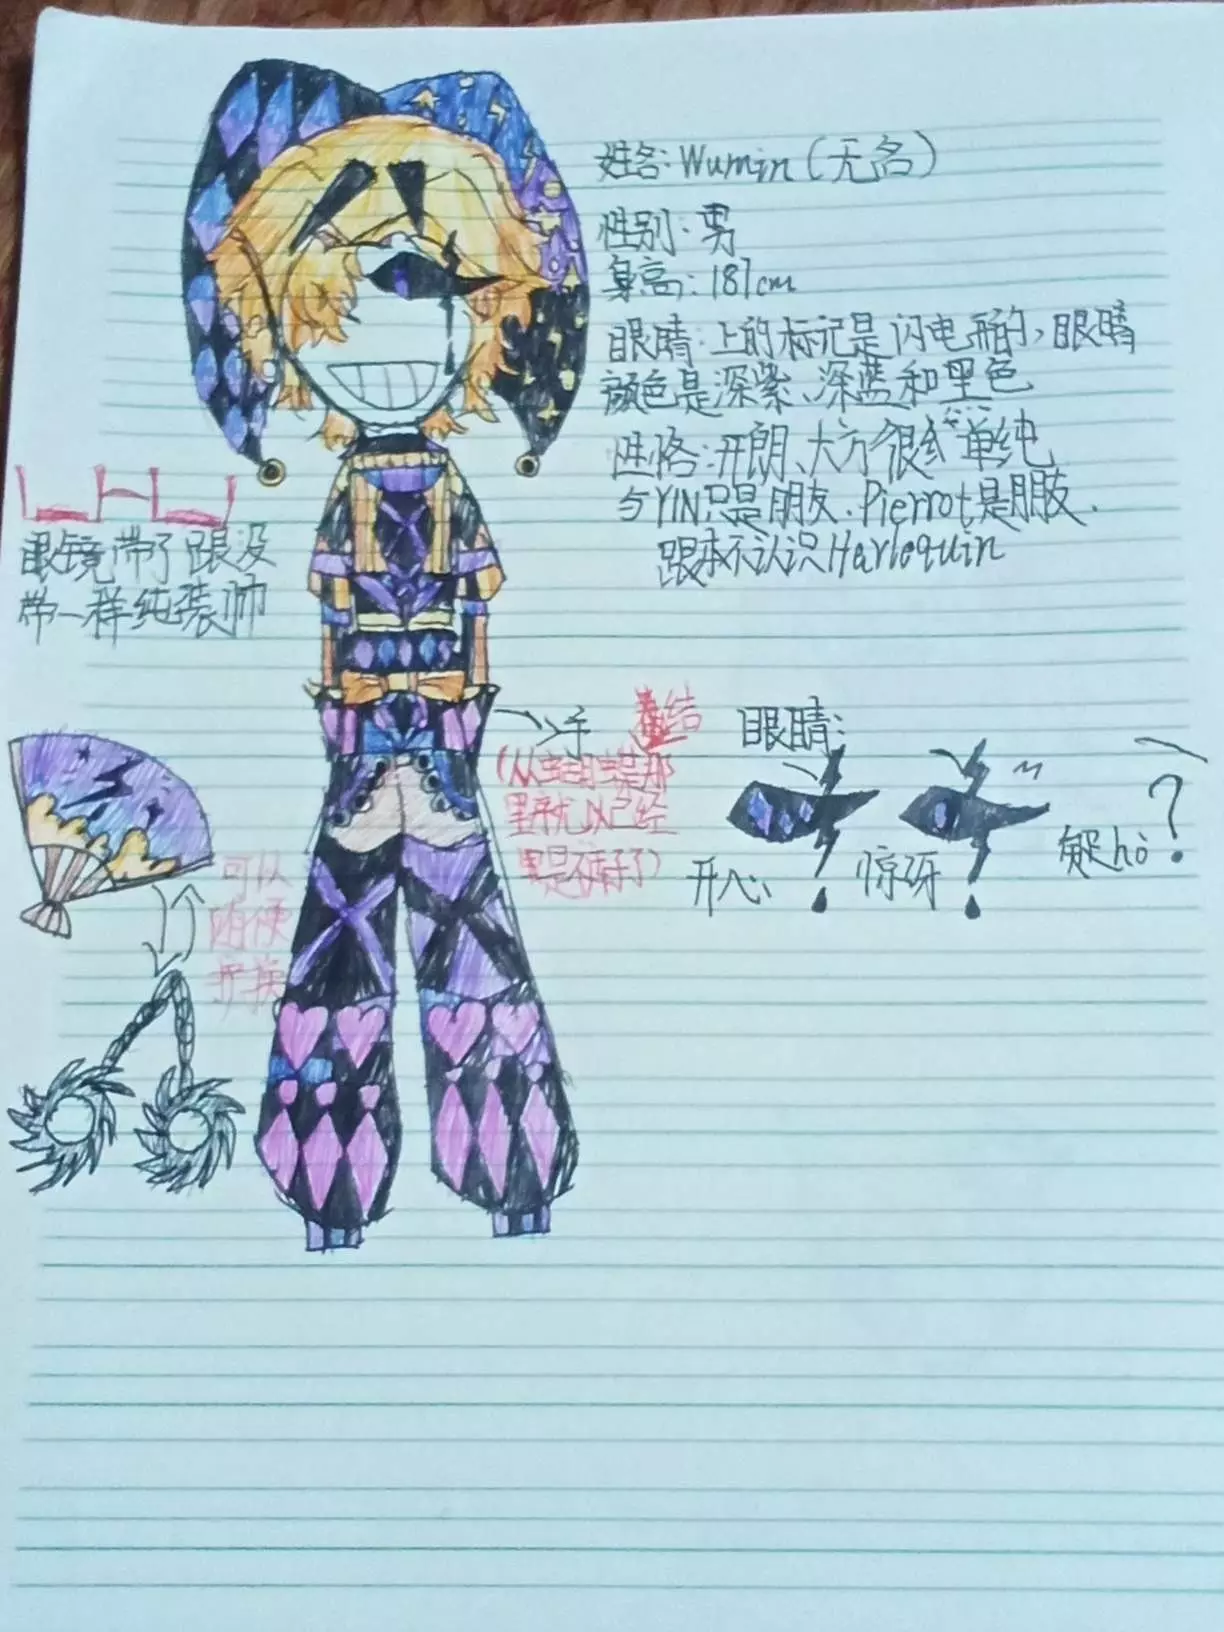 姓名: Wumin (无名)
性别: 男
身高: 187cm
眼睛: 上的标记是闪电形的, 眼睛
颜色是深紫、深蓝和黑色
性格: 开朗、大方很 单纯
与YIN只是朋友、Pierrot是朋友.
跟本不认识Harlequin
眼镜带了跟没
带一样纯装帅
手
结
(从蝴蝶是那
里就以已经
是裤子了)
眼睛:
开心:
惊讶
hò?
可以
随便
换